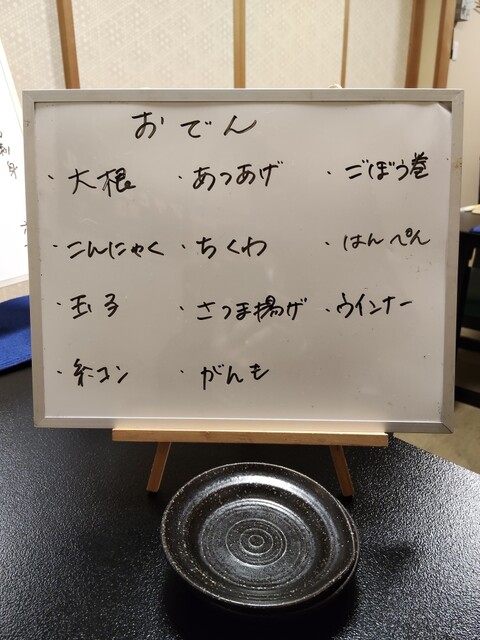 おでん
・大根 ・あつあげ ・ごぼう巻
・こんにゃく ・ちくわ ・はんぺん
・玉子 ・さつま揚げ ・ウインナー
・糸コン ・がんも
刺身